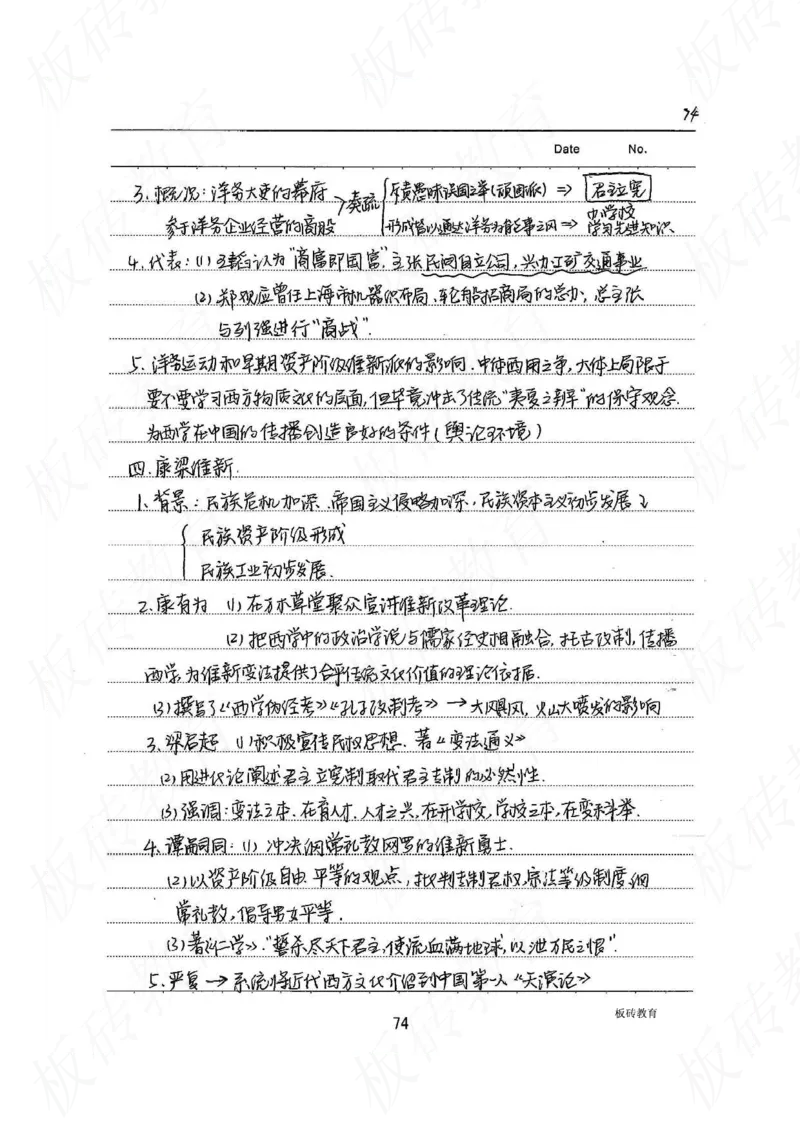 74
Date No.
3. 概况: 洋务大吏的幕府 > 奏疏 { 斥责愚昧误国之举(顽固派) => 君主立宪
参于洋务企业经营的商股 形成皆以通达洋务为能事之风 => 中学校 学习先进知识
4. 代表: (1) 王韬认为"商富即国富", 主张民间自立公司, 兴办工矿交通事业
(2) 郑观应曾任上海市机器织布局、轮船招商局的总办, 总主张
与列强进行"商战".
5. 洋务运动和早期资产阶级维新派的影响. 中体西用之争, 大体上局限于
要不要学习西方物质文化的层面, 但毕竟冲击了传统"夷夏之辨"的保守观念.
为西学在中国的传播创造良好的条件(舆论环境)
四. 康梁维新.
1. 背景: 民族危机加深. 帝国主义侵略加深, 民族资本主义初步发展
{ 民族资产阶级形成
民族工业初步发展.
2. 康有为 (1) 在万木草堂聚众宣讲维新改革理论.
(2) 把西学中的政治学说与儒家经史相融合, 托古改制, 传播
西学, 为维新变法提供了合乎传统文化价值的理论依据.
(3) 撰写了《西学伪经考》《孔子改制考》 → 大飓风, 火山大喷发的影响
3. 梁启超 (1) 积极宣传民权思想. 著《变法通义》
(2) 用进化论阐述君主立宪制取代君主专制的必然性.
(3) 强调: 变法之本, 在育人才. 人才之兴, 在开学校, 学校之本, 在变科举.
4. 谭嗣同: (1) 冲决纲常礼教网罗的维新勇士.
(2) 以资产阶级自由. 平等的观点, 批判专制君权. 宗法等级制度. 纲
常礼教, 倡导男女平等.
(3) 著《仁学》. "誓杀尽天下君主, 使流血满地球, 以泄万民之恨".
5. 严复 → 系统将近代西方文化介绍到中国第一人《天演论》
板砖教育
74